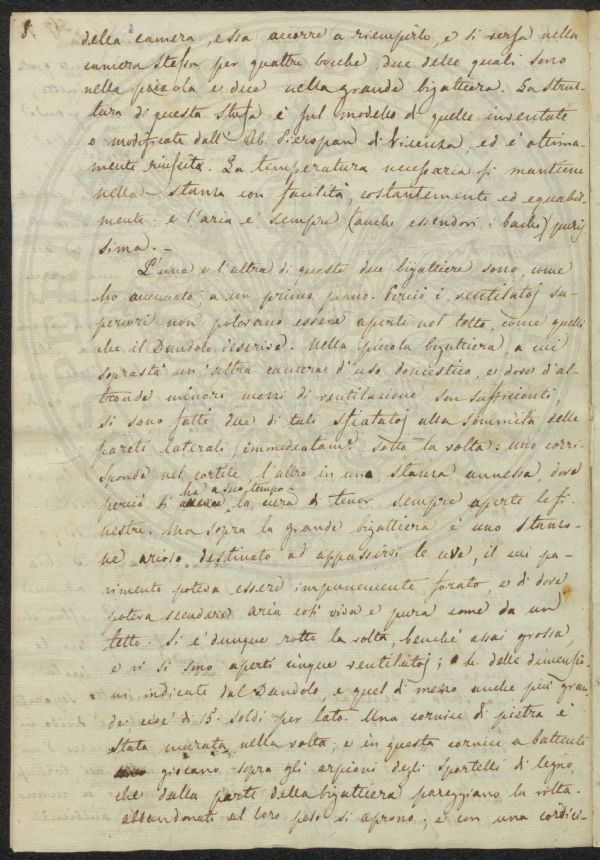 8.
della camera, essa accorre a riempirlo, e si versa nella
camera stessa per quattro bocche due delle quali sono
nella piccola e due nella grande bigattiera. La strut-
tura di questa stufa è sul modello di quelle inventate
o modificate dall' Ab. Pieropan di Vicenza, ed è ottima-
mente riuscita. La temperatura necessaria si mantiene
nella stanza con facilità, costantemente ed equabil-
mente; e l'aria è sempre (anche essendovi i bachi) puris
sima. –
L'una e l'altra di queste due bigattiere sono, come
ho accennato, a un primo piano. Perciò i ventilatoj su-
periori non potevano essere aperti nel tetto, come quelli
che il Dandolo descrive. Nella piccola bigattiera, a cui
soprastà un'altra camera d'uso domestico, e dove d'al-
tronde minori mezzi di ventilazione son sufficienti,
si sono fatti due di tali sfiatatoj alla sommità delle
pareti laterali, immediatamᵉ. sotto la volta: uno corri-
sponde nel cortile, l'altro in una stanza annessa, dove
perciò si ha a suo tempo la cura di tener sempre aperte le fi-
nestre. Ma sopra la grande bigattiera è uno stanzo-
ne arioso destinato ad appassirvi le uve, il cui pa-
vimento poteva essere impunemente forato, e di dove
poteva scendere aria così viva e pura come da un
tetto. Si è dunque rotto la volta, benchè assai grossa,
e vi si sono aperti cinque ventilatoj; 4 delle dimensio-
ni indicate dal Dandolo, e quel di mezzo anche più gran
de cioè di 15. soldi per lato. Una cornice di pietra è
stata murata nella volta; e in questa cornice a battente
giocano sopra gli arpioni degli sportelli di legno,
che dalla parte della bigattiera pareggiano la volta.
abbandonati al loro peso si aprono; e con una cordici-